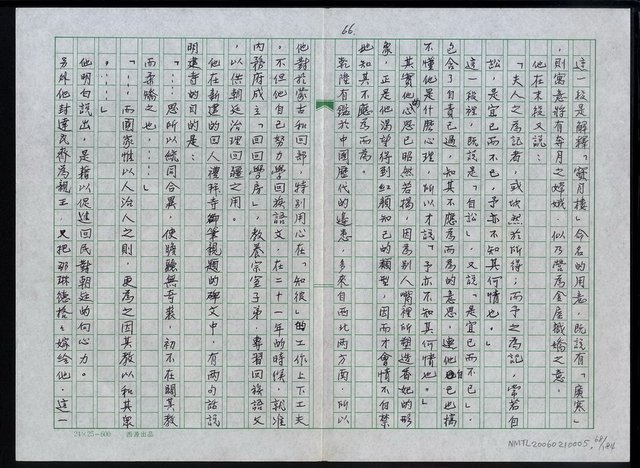 66.
這一段是解釋「寶月樓」命名的用意，既說有「廣寒」
，則寓意將有奔月之嫦娥，似乃營為金屋藏嬌之意。
他在末段又說：
「夫人之為記者，或欣然於所得；而予之為記，常若自
訟，是宜已而不已，予亦不知其何情也。」
這一段裡，既說是「自訟」，又說「是宜已而不已」，
包含了自責已過，知其不應為而為的意思，連他自己也搞
不懂他是什麼心理，所以才說「予亦不知其何情也」。
其實他的心思已昭然若揭，因為別人嘴裡所塑造香妃的形
象，正是他渴望得到紅顏知己的類型，因而才會情不自禁
地知其不應為而為。
乾隆有鑑於中國歷代的邊患，多來自西北兩方面，所以
他對於蒙古和回部，特別用心在「知彼」的工作上下工夫
，不但他自己努力學回族語文，在二十一年的時候，就准
內務府成立「回回學房」，教養宗室子弟，專習回族語文
，以供朝廷治理回疆之用。
他在新建的回人禮拜寺御筆親題的碑文中，有兩句話說
明建寺的目的是：
「……思所以統同合異，使曠無奇袤，初不在闢其教
而矯之也，……」
「……而國家惟以人治人之則，更為之因其教以和其眾
……」
他明白說出，是藉以促進回民對朝廷的向心力。
另外他封達瓦齊為親王，又把耶琳德格格嫁給他，這一
24×25=600 西源出品
NMTL20060210005, 68/184